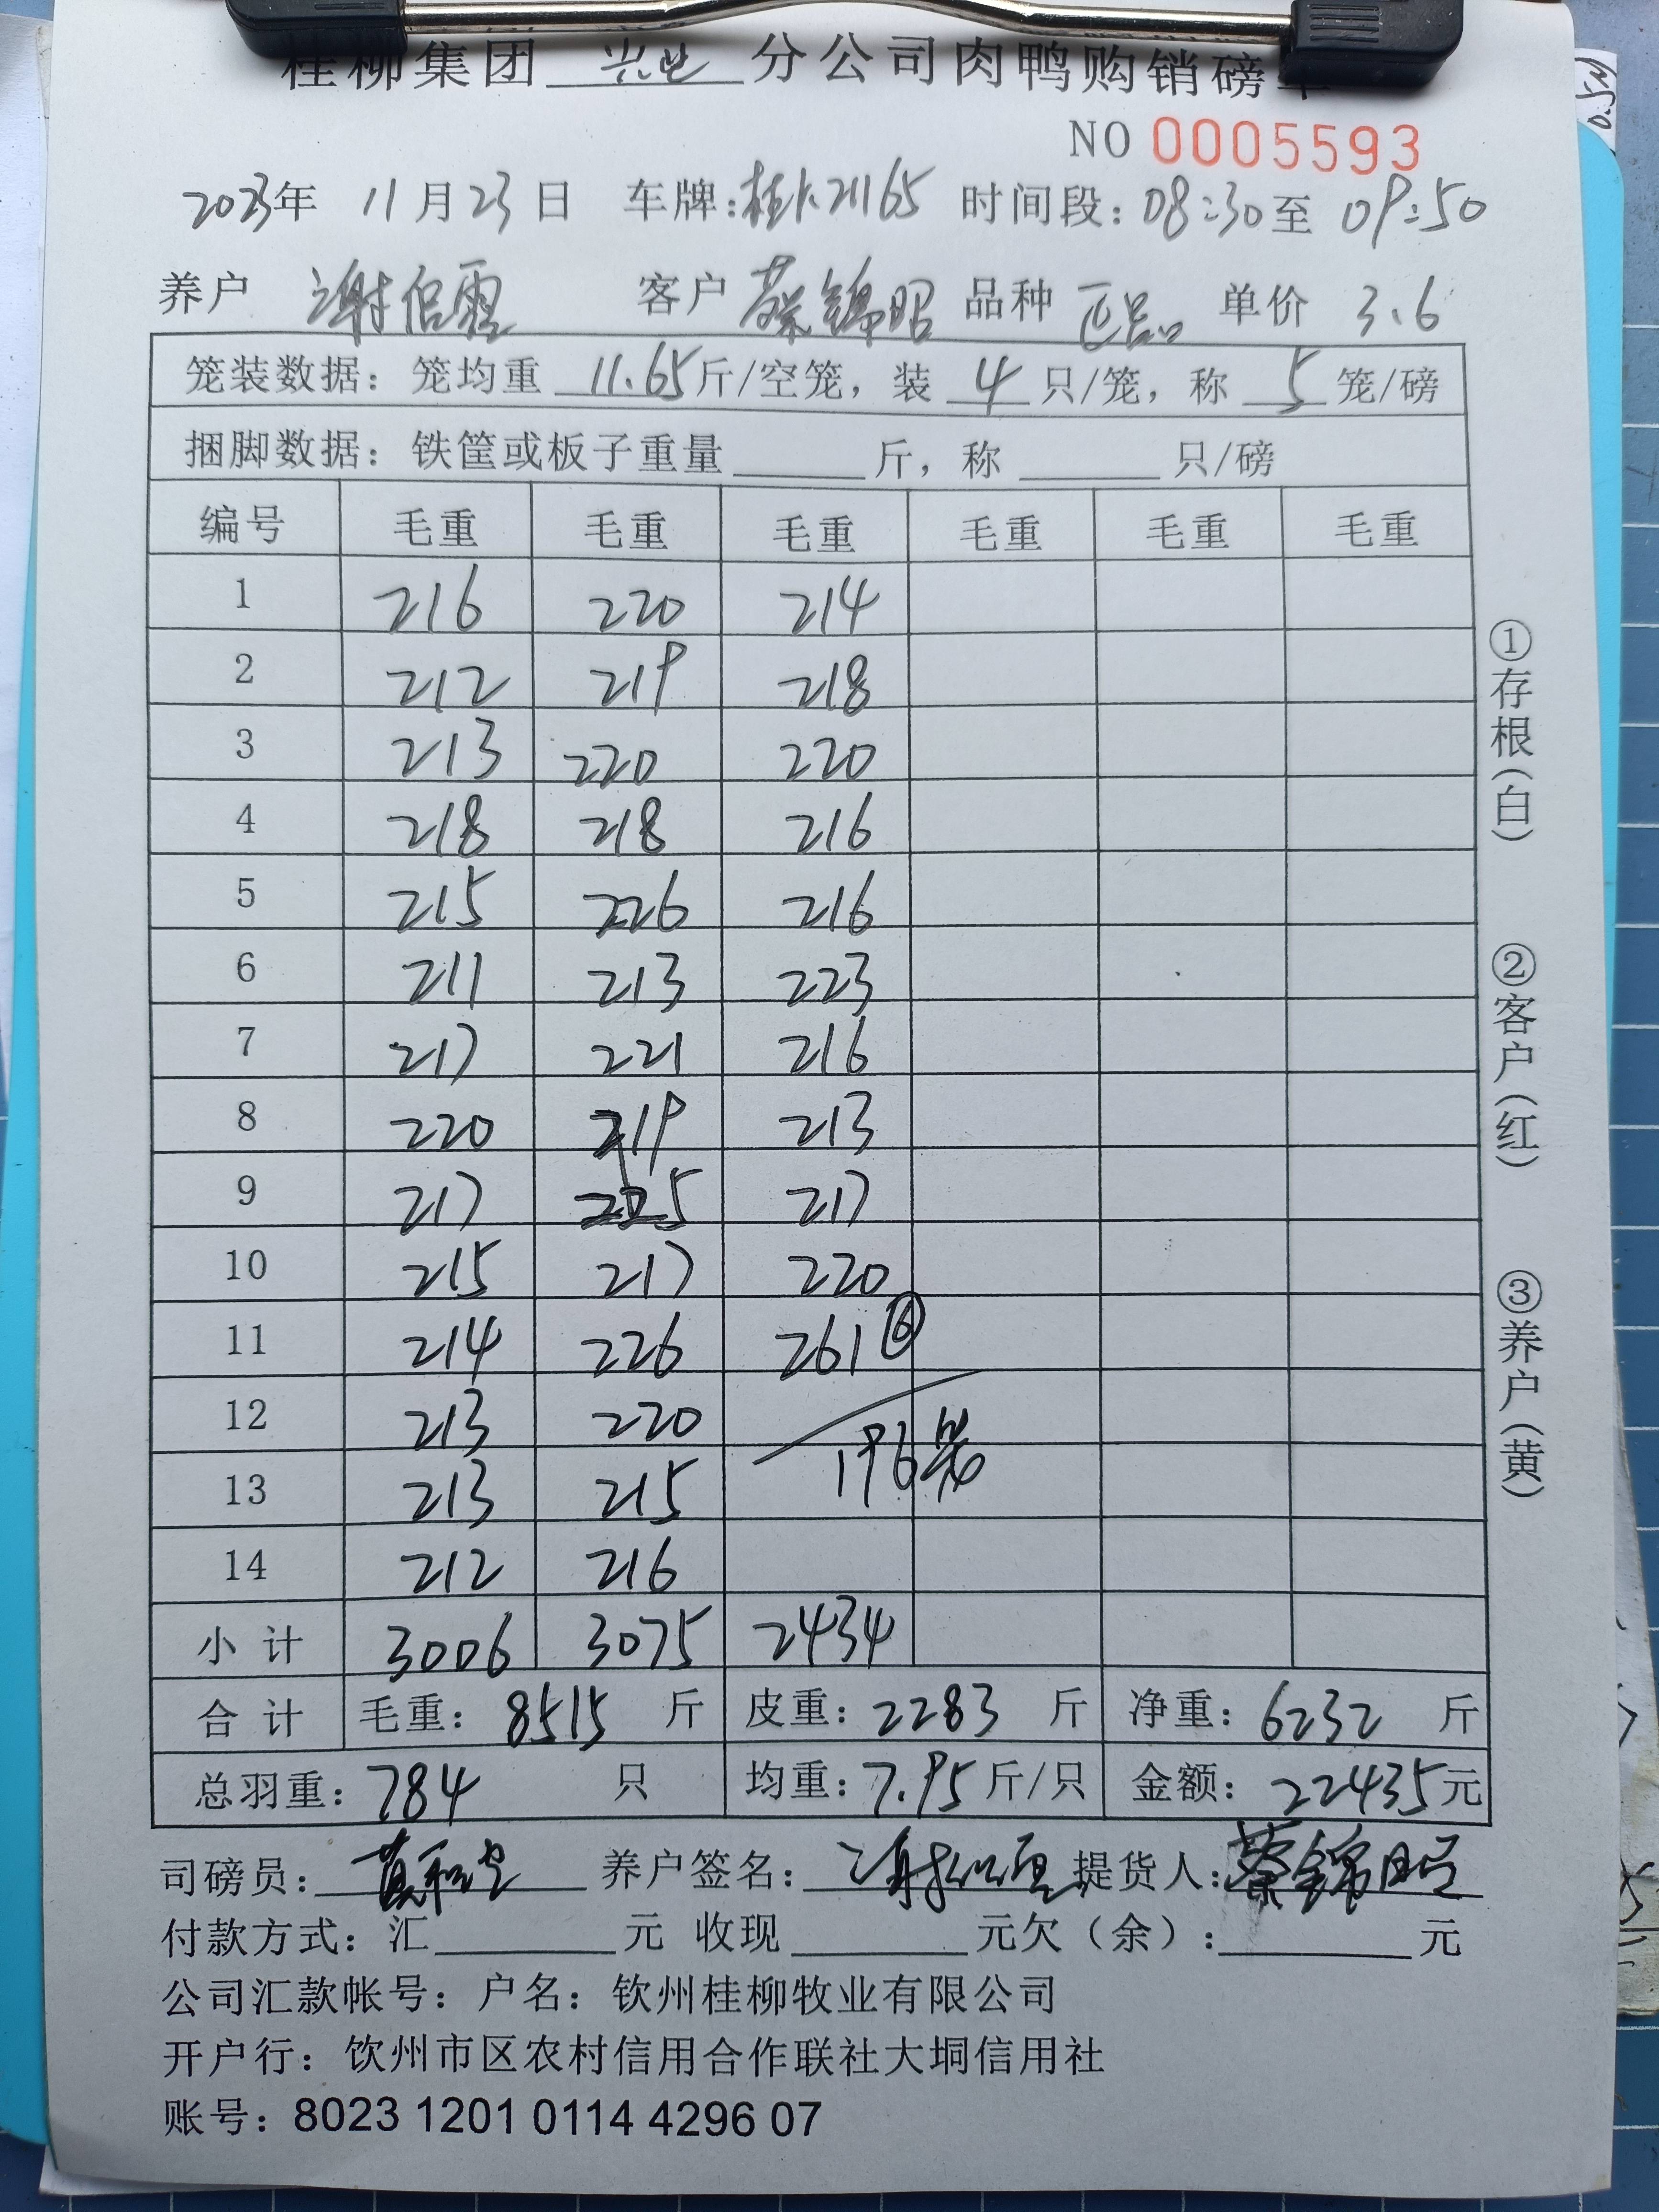 桂柳集团 兴业 分公司肉鸭购销磅单
NO 0005593
2023年 11月23日 车牌:桂K21165 时间段:08:30至 09:50
养户 谢 客户 蔡锦昭 品种 正品 单价 3.6
笼装数据: 笼均重 11.65斤/空笼, 装 4 只/笼, 称 5 笼/磅
捆脚数据: 铁筐或板子重量 斤, 称 只/磅
编号 毛重 毛重 毛重 毛重 毛重 毛重
1 216 220 214
2 212 219 218
3 213 220 220
4 218 218 216
5 215 226 216
6 211 213 223
7 217 221 216
8 220 219 213
9 217 225 217
10 215 217 220
11 214 226 261 ⑥
12 213 220
196笼
13 213 215
14 212 216
小计 3006 3075 2434
合计 毛重: 8515 斤 皮重: 2283 斤 净重: 6232 斤
总羽重: 784 只 均重: 7.95 斤/只 金额: 22435元
司磅员: 养户签名: 谢 提货人: 蔡锦昭
付款方式: 汇 元 收现 元欠(余): 元
公司汇款帐号: 户名: 钦州桂柳牧业有限公司
开户行: 钦州市区农村信用合作联社大垌信用社
账号: 8023 1201 0114 4296 07
①存根(白)
②客户(红)
③养户(黄)
0.5M